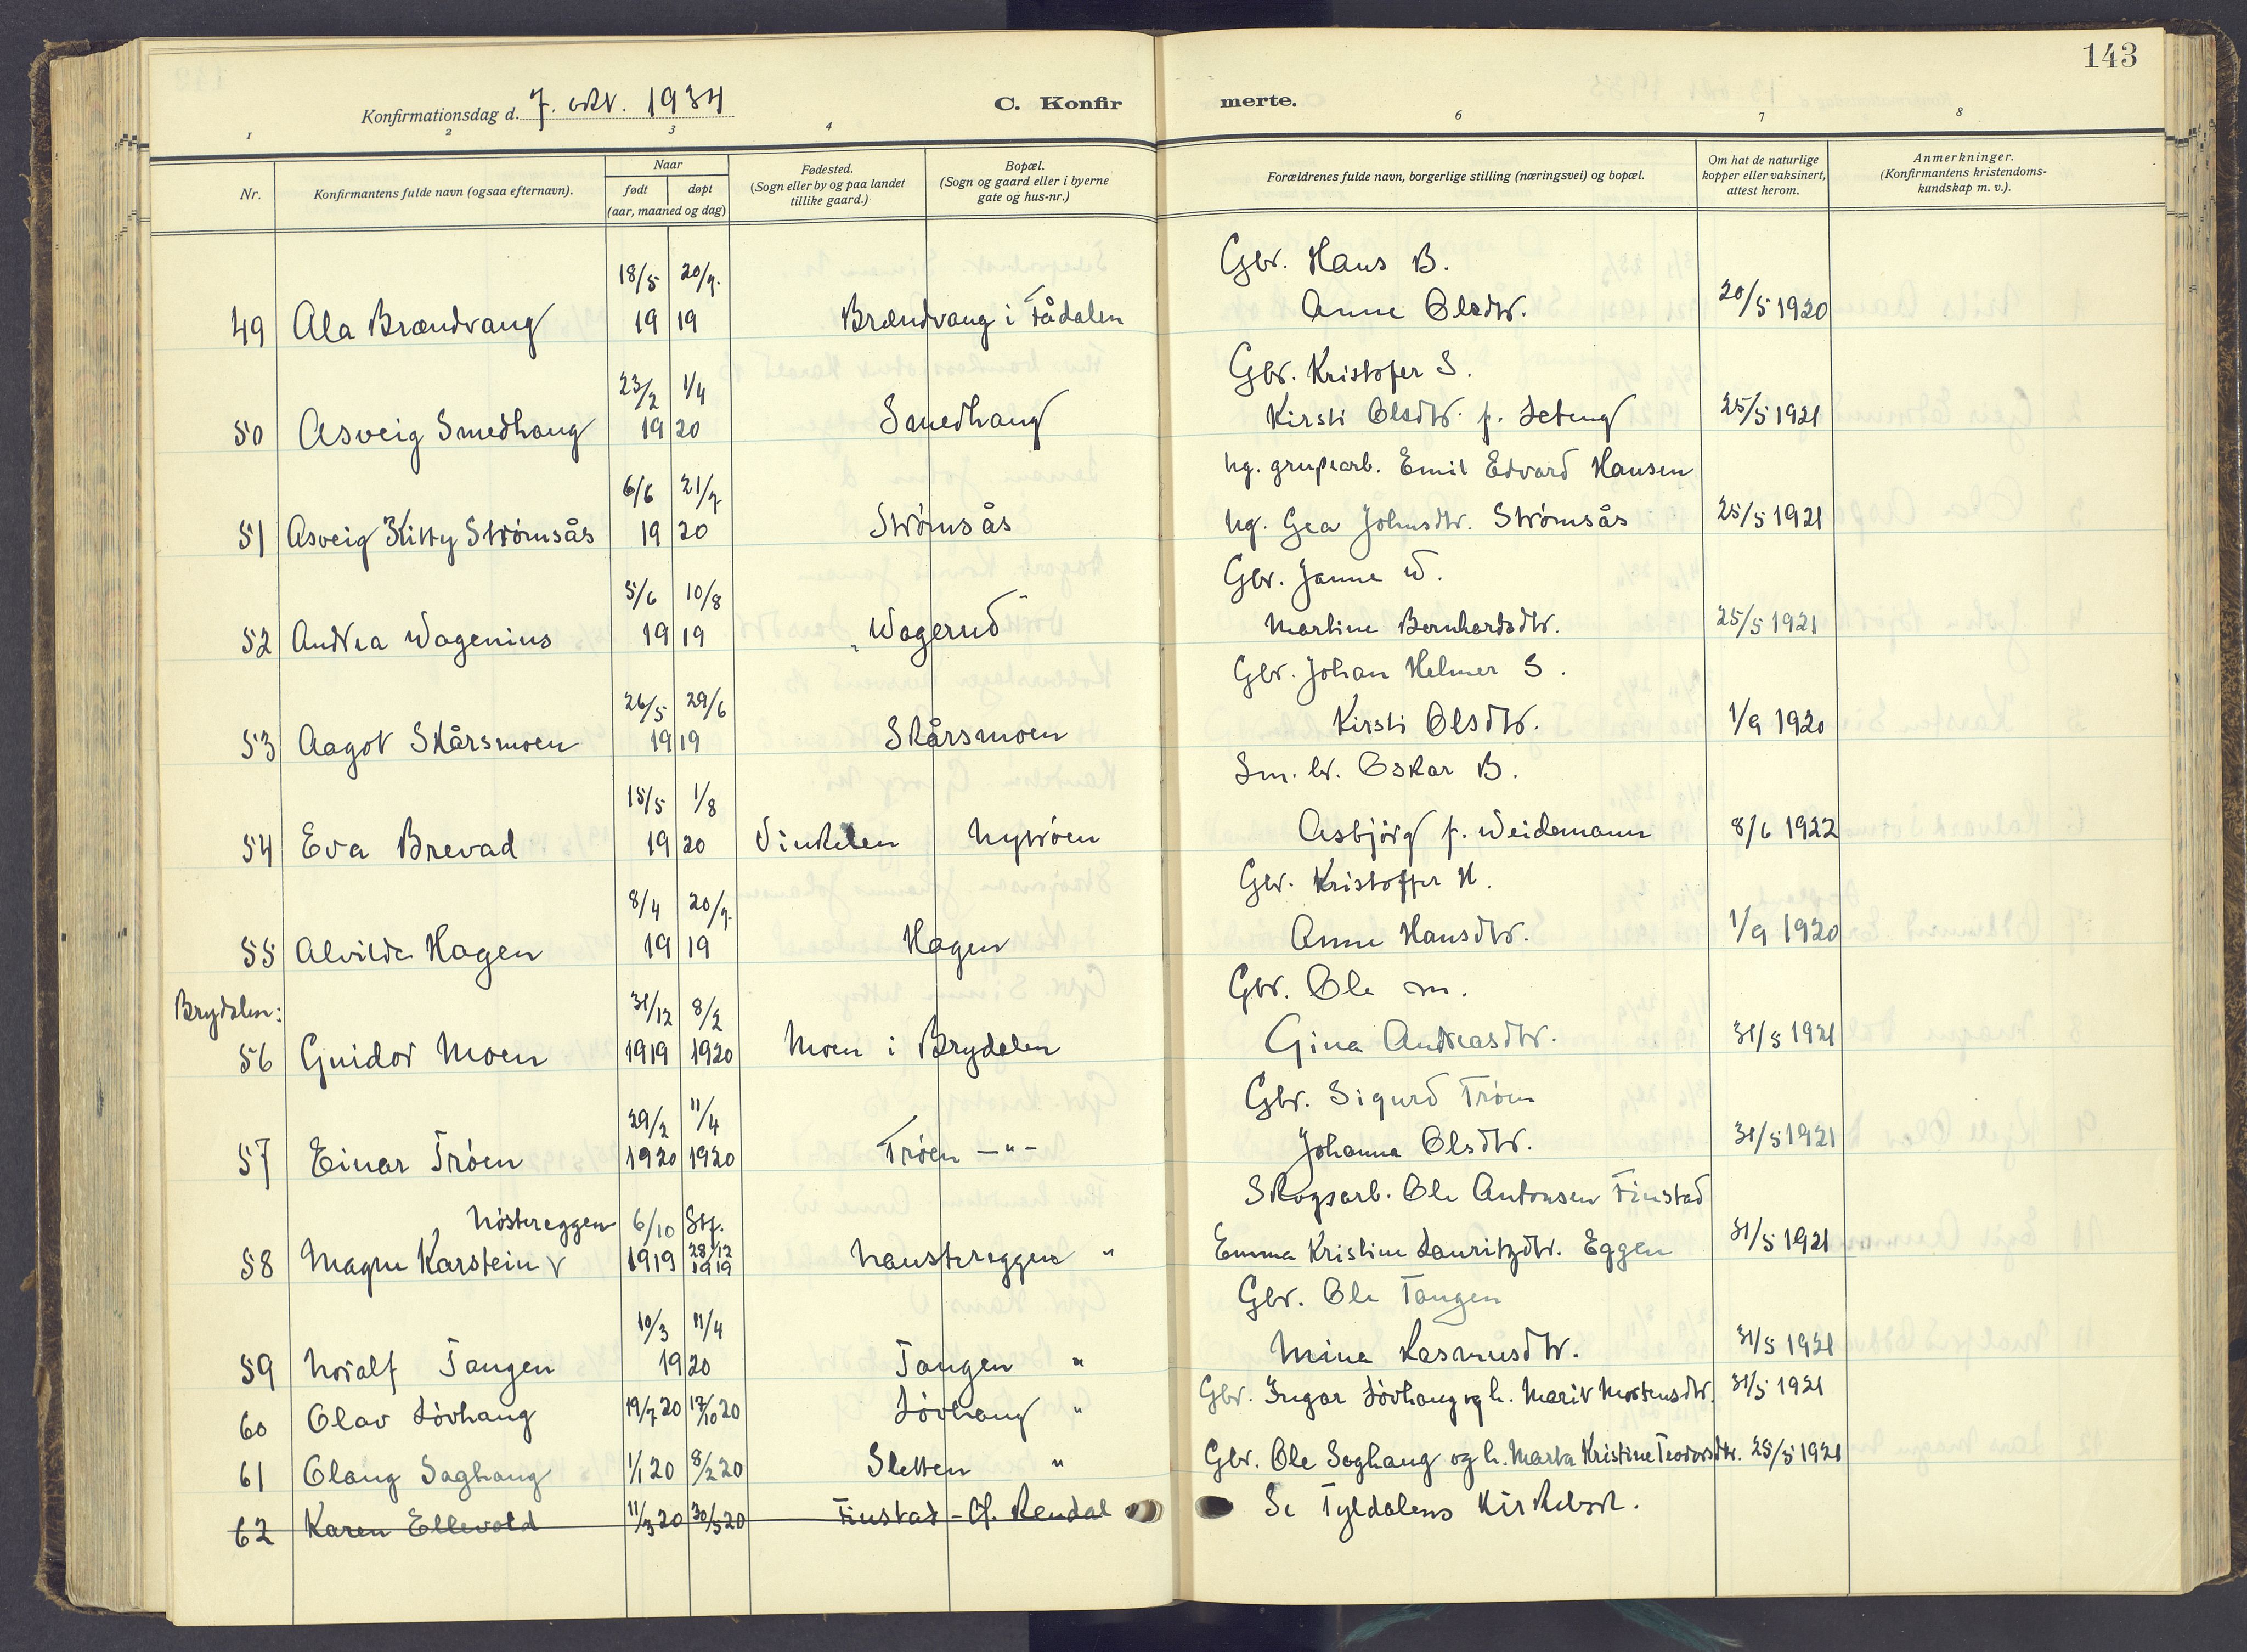 143
Konfirmationsdag d. 7. okt. 1934
C. Konfirmerte.
1 2 3 4 6 7 8
Nr.
Konfirmantens fulde navn (ogsaa efternavn).
Naar
født døpt
(aar, maaned og dag)
Fødested.
(Sogn eller by og paa landet
tillike gaard.)
Bopæl.
(Sogn og gaard eller i byerne
gate og hus-nr.)
Forældrenes fulde navn, borgerlige stilling (næringsvei) og bopæl.
Om hat de naturlige
kopper eller vaksinert,
attest herom.
Anmerkninger.
(Konfirmantens kristendoms-
kundskap m. v.).
18/5 20/7. Gbr. Hans B.
49 Ala Brændvang 19 19 Brændvang i Tådalen Anne Olsdtr. 20/5 1920
23/2 1/4 Gbr. Kristofer S.
50 Asveig Smedhaug 19 20 Smedhaug Kirsti Olsdtr. f. Seteng 25/5 1921
6/6 21/7 ug. grupearb. Emil Edvard Hansen
51 Asveig Kitty Strømsås 19 20 Strømsås ug. Gea Johnsdtr. Strømsås 25/5 1921
5/6 10/8 Gbr. Janne W.
52 Andrea Wagenius 19 19 "Wagerud" Martine Bernhardsdtr. 25/5 1921
26/5 29/6 Gbr. Johan Helmer S.
53 Aagot Skårsmoen 19 19 Skårsmoen Kirsti Olsdtr. 1/9 1920
15/5 1/8 Sm. br. Oskar B.
54 Eva Brevad 19 20 Vinkelen Nytrøen Asbjørg f. Weidemann 8/6 1922
8/4 20/7. Gbr. Kristoffer H.
55 Alvilde Hagen 19 19 Hagen Anne Hansdtr. 1/9 1920
Brydalen: 31/12 8/2 Gbr. Ole M.
56 Guidor Moen 1919 1920 Moen i Brydalen Gina Andreasdtr. 31/5 1921
29/2 11/4 Gbr. Sigurd Trøen
57 Einar Trøen 1920 1920 Trøen -"- Johanna Olsdtr. 31/5 1921
Nøstereggen 6/10 Stf. Skogsarb. Ole Antonsen Finstad
58 Magne Karstein v 1919 28/12 1919 Naustereggen " Emma Kristine Lauritzdtr. Eggen 31/5 1921
10/3 11/4 Gbr. Ole Tangen
59 Noralf Tangen 19 20 Tangen " Mina Rasmusdtr. 31/5 1921
60 Olav Løvhaug 19/7 20 17/10 20 Løvhaug " Gbr. Ingar Løvhaug og h. Marit Mortensdtr. 31/5 1921
61 Olaug Saghaug 1/1 20 8/2 20 Sletten " Gbr. Ole Saghaug og h. Marta Kristine Teodorsdtr. 25/5 1921
62 Karen Ellevold 11/3 20 30/5 20 Finstad - Ø. Rendal Se Tyldalens Kirkebok.